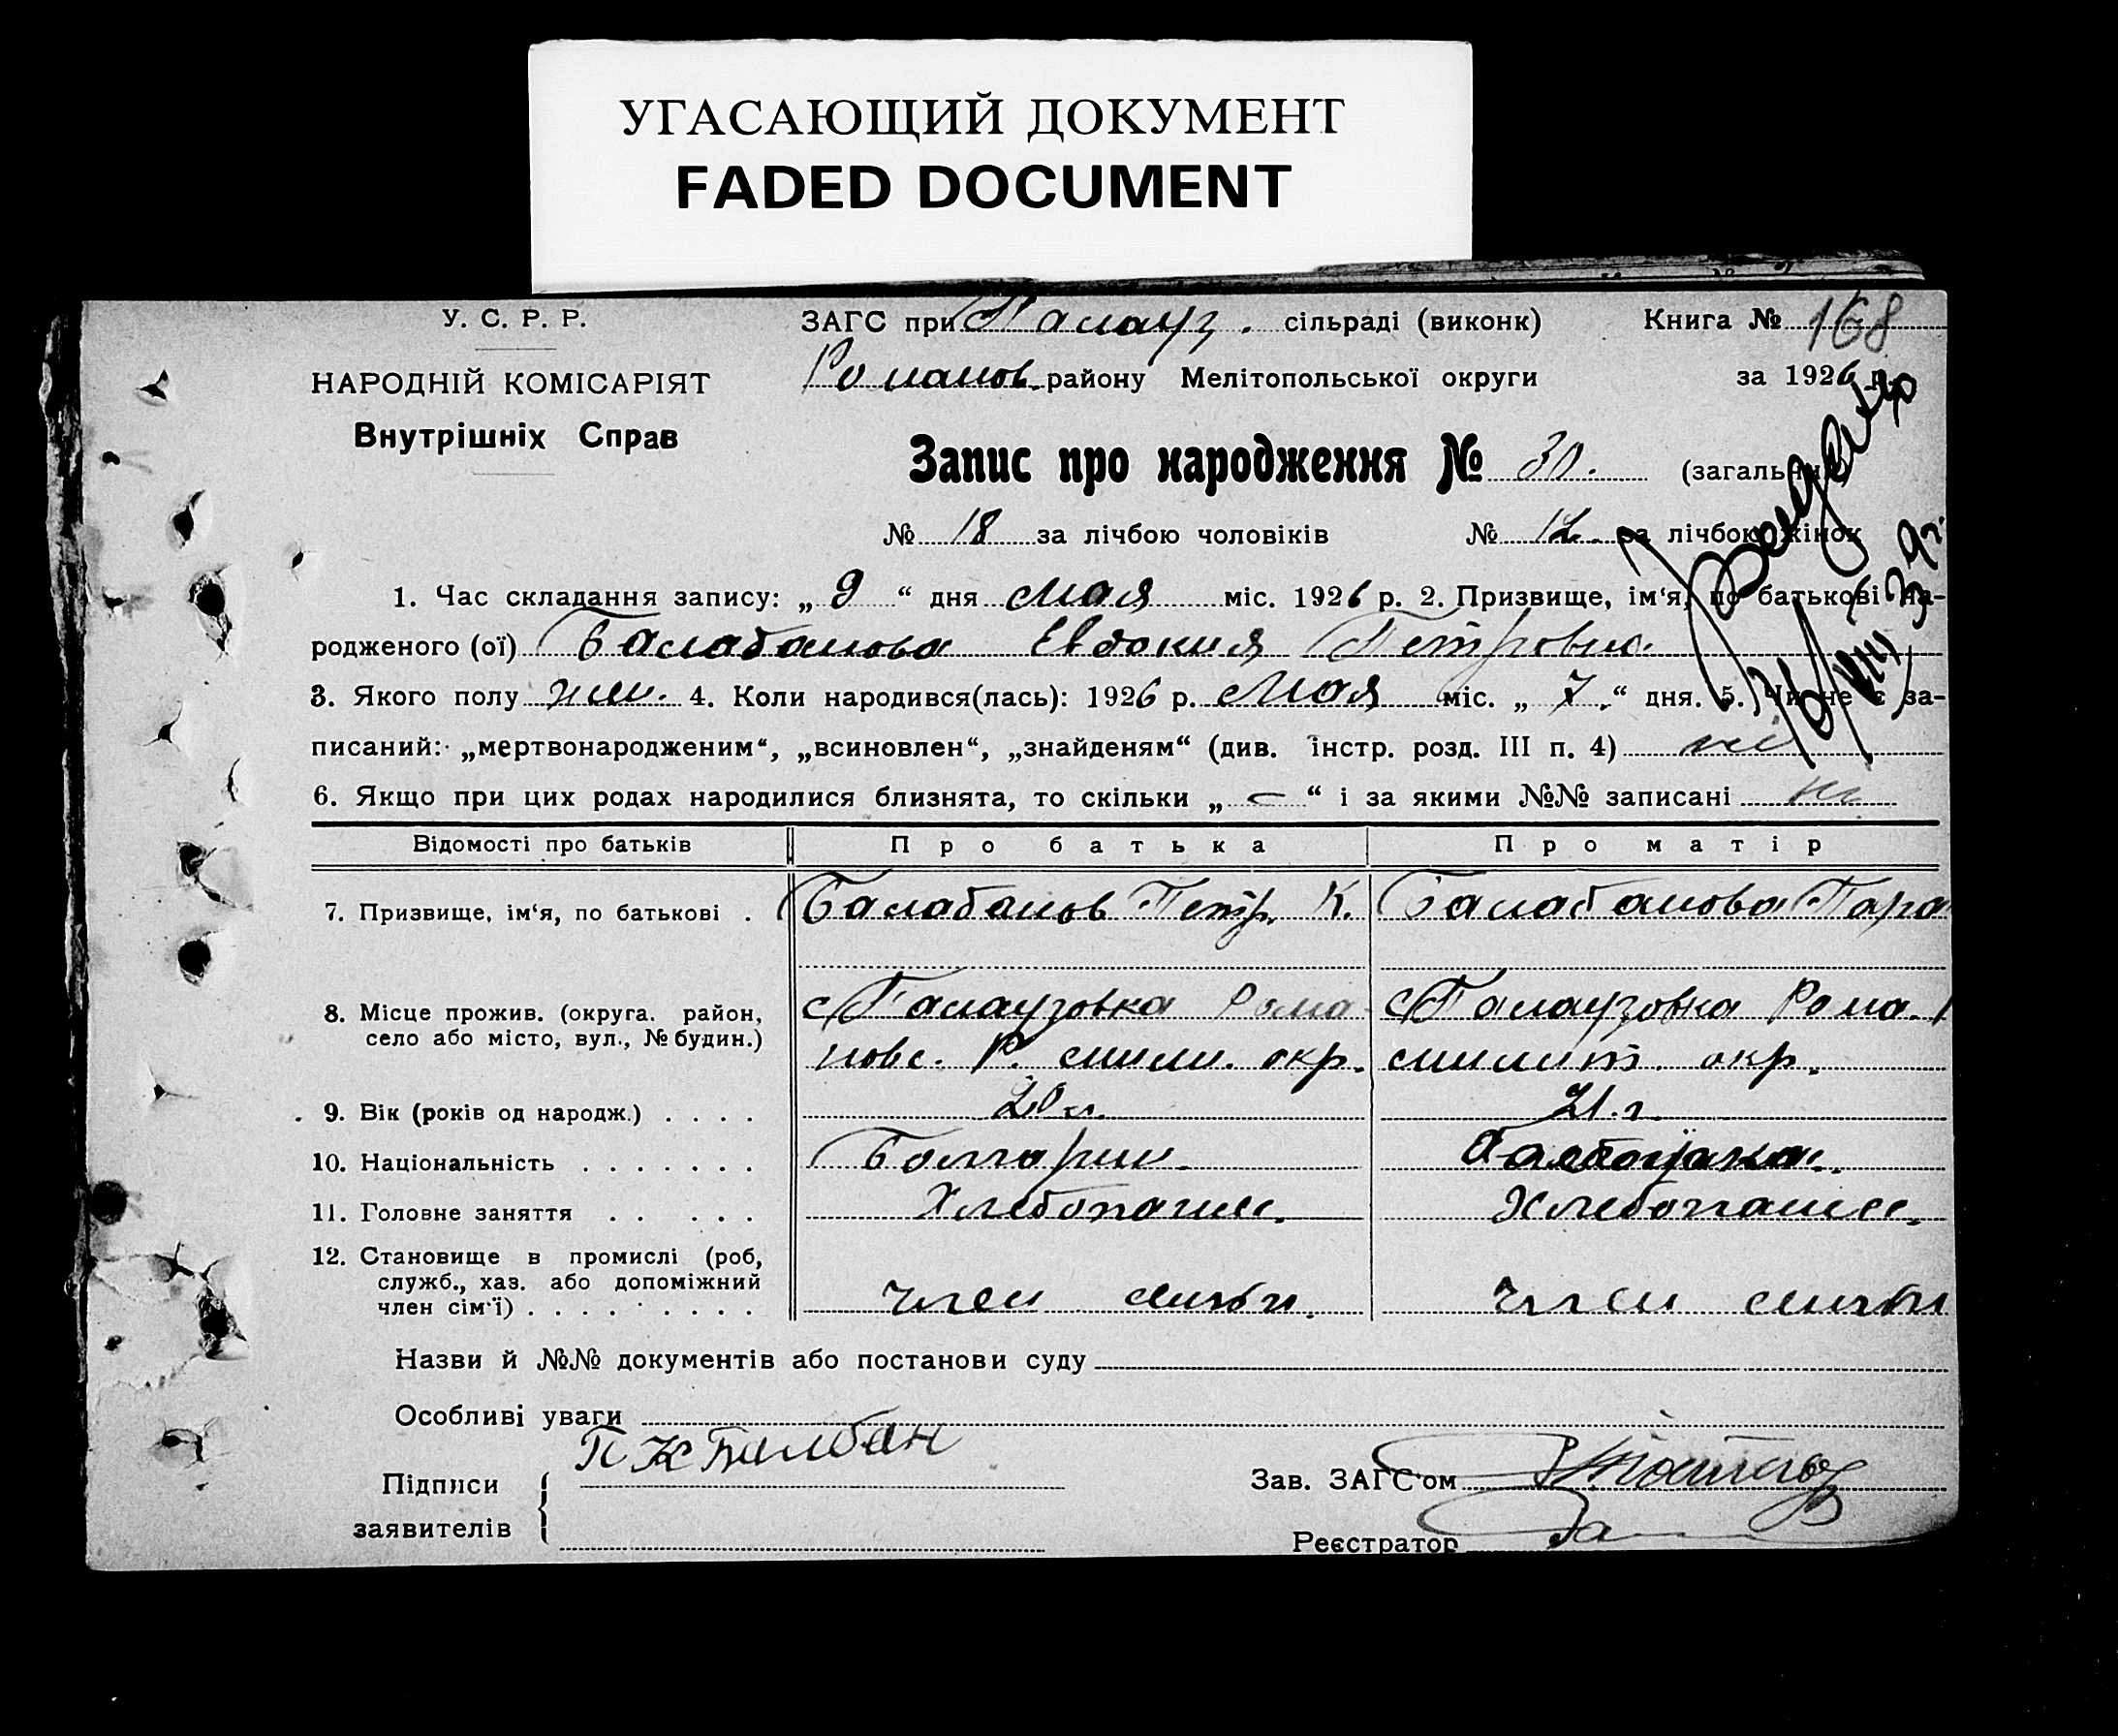 УГАСАЮЩИЙ ДОКУМЕНТ
FADED DOCUMENT
У. С. Р. Р.
НАРОДНІЙ КОМІСАРІЯТ
Внутрішніх Справ
ЗАГС при Палауз. сільраді (виконк)
Романов. району Мелітопольської округи
Книга № 168
за 1926 р.
Запис про народження № 30. (загальний)
№ 18 за лічбою чоловіків № 12. за лічбою жінок
1. Час складання запису: „ 9 “ дня Мая міс. 1926 р. 2. Призвище, ім‘я, по батькові на-
родженого (ої) Балабанова Евдокия Петровна.
3. Якого полу жен. 4. Коли народився(лась): 1926 р. Мая міс. „ 7. “ дня. 5. Чи не є за-
писаний: „мертвонародженим“, „всиновлен“, „знайденям“ (див. інстр. розд. III п. 4) ні
6. Якщо при цих родах народилися близнята, то скільки „ – “ і за якими №№ записані ні
Відомості про батьків Про батька Про матір
7. Призвище, ім‘я, по батькові . Балабанов Петр. К. Балабанова Пара
8. Місце прожив. (округа. район,
село або місто, вул., № будин.)
с Палаузовка Рома
новс. Р. мели. окр.
с Палаузовка Рома.
мелит. окр.
9. Вік (років од народж.) . . . . 20 л. 21. г.
10. Національність . . . . . . . Болгарин.
11. Головне заняття . . . . . Хлебопашес. Хлебопашес.
12. Становище в промислі (роб,
служб., хаз. або допоміжний
член сім‘ї) . . . . . . . . . член семьи. член семьи
Назви й №№ документів або постанови суду
Особливі уваги
Підписи
заявителів
П К Балбан
Зав. ЗАГС‘ом
Реєстратор